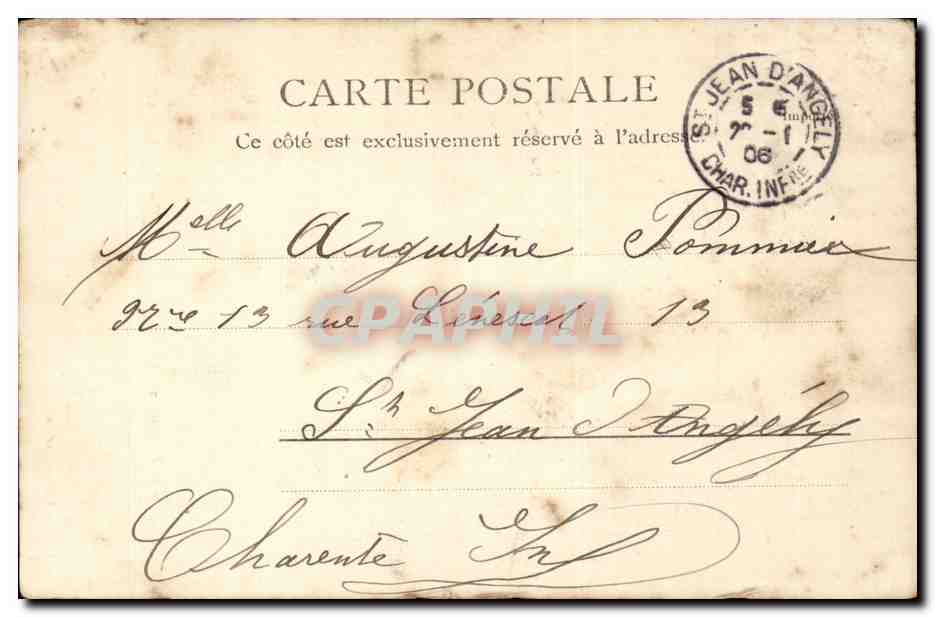 CARTE POSTALE
Ce côté est exclusivement réservé à l'adresse
ST JEAN D'ANGELY
5
06
CHAR. INFRE
Melle Augustine Pommier
13 rue 13
CPAPHIL
St Jean d'Angély
Charente Inf